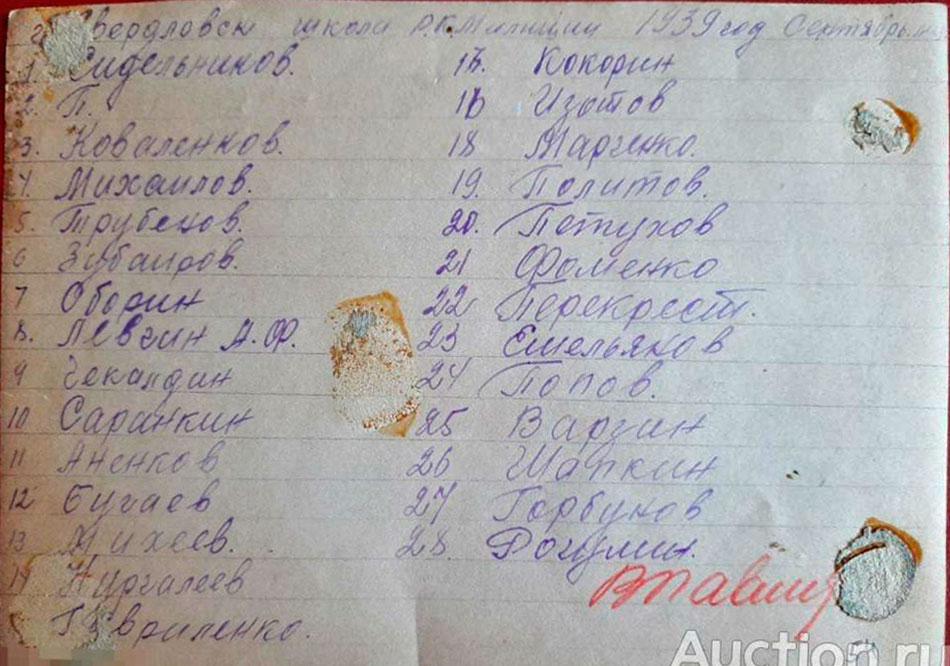 Свердловск школа Р.К.Милиции 1939 год Сентябрь
1. Сидельников.
2. П.
3. Коваленков.
4. Михаилов.
5. Трубеков.
6 Зубаиров.
7 Оборин
8. Левгин А.Ф.
9 Чекалдин
10 Саранкин
11 Аненков
12 Бугаев
13 Михеев.
14 Нургалеев
Гавриленко.
Кокорин
Изотов
18 Марченко.
19. Политов.
20. Петухов
21 Фоменко
22 Перекрест.
23 Емельяков
24 Попов.
25 Варзин
26 Шапкин
27 Горбунов
28. Рогулин.
Auction.ru